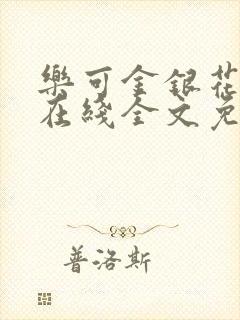 樂可金銀花
在綫全文免
普洛斯